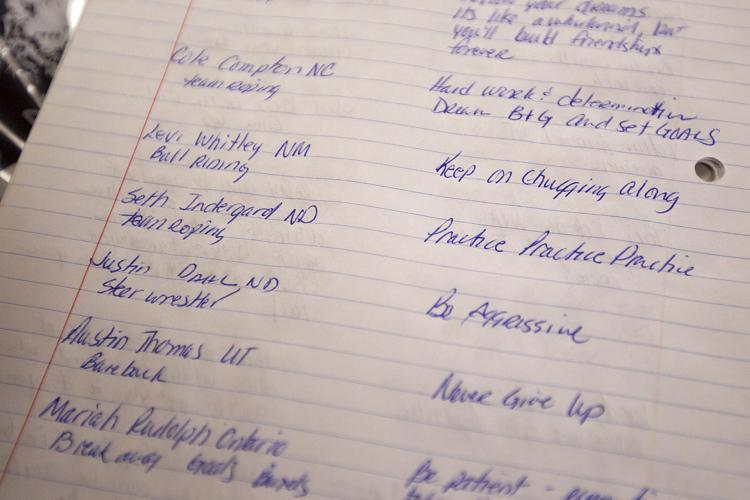 your dreams
its like a whirlwind, but
you'll build friendships
forever
Cole Compton NC
team roping
Hard work & determination
Dream BIG and set GOALS
Levi Whitley NM
Bull Riding
Keep on chugging along
Seth Indergard ND
team roping
Practice Practice Practice
Justin Dahl ND
Steer wrestler
Be Aggressive
Austin Thomas UT
Bareback
Never Give Up
Mariah Rudolph Ontario
Break away Goats Barrels
Be patient -